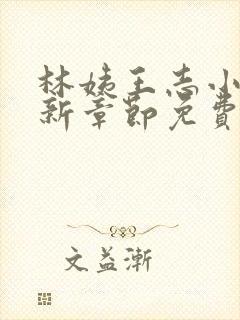 林姨王志小
新章節免費
文益漸